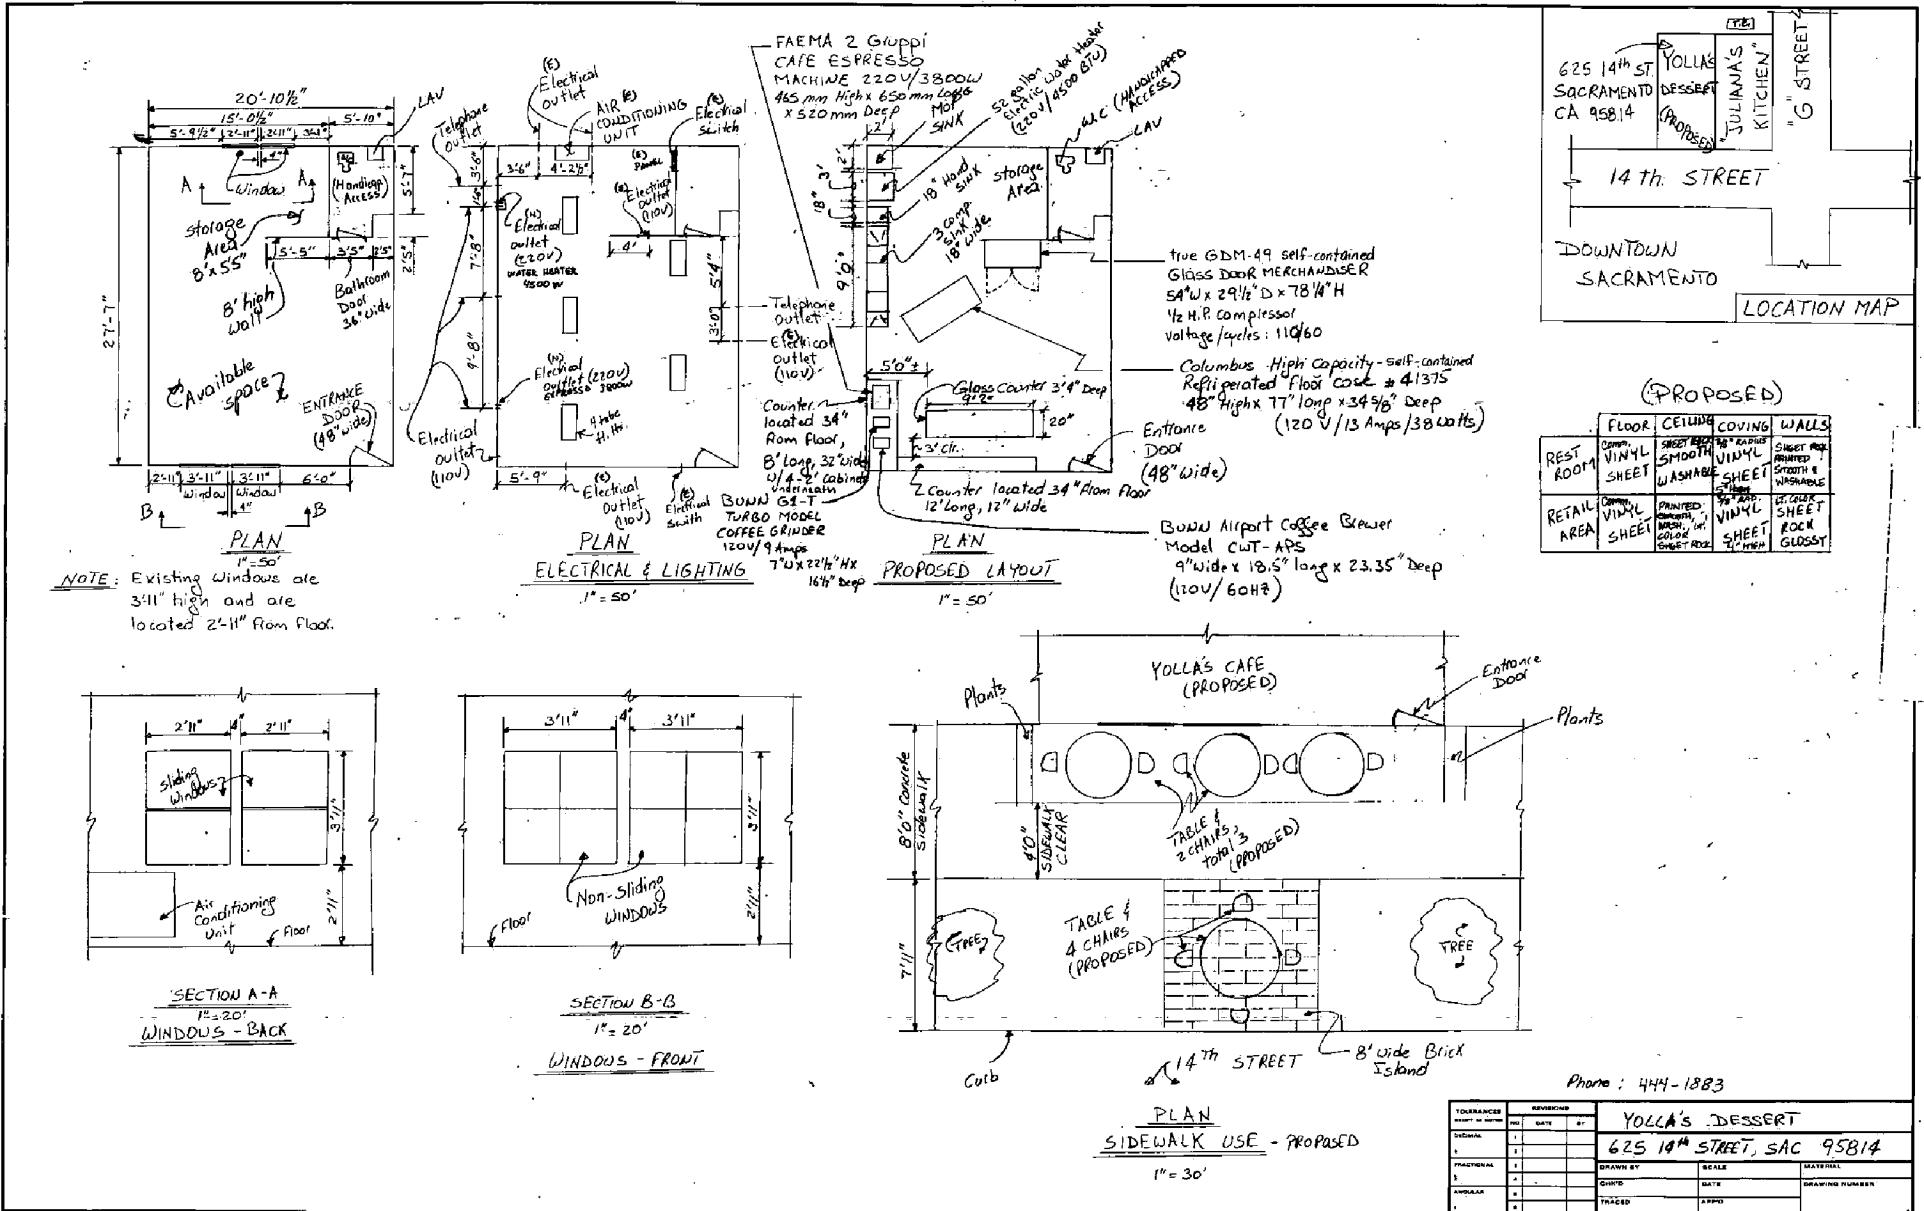 20'-10½"
15'-0½"
5'-10"
5'-9½"
2'-11"
2'-11"
LAV
4"
Window
A
A
(Handicap
Access)
5'-7"
Storage
Area
8'x5'5"
5'-5"
3'5"
2'5"
2'5"
8' high
wall
Bathroom
Door
36" wide
27'-7"
Available
space
ENTRANCE
DOOR
(48" wide)
2'-11"
3'-11"
3'-11"
6'-0"
Window
Window
4"
B
B
PLAN
1"=50'
NOTE: Existing windows are
3'11" high and are
located 2'-11" from floor.
Telephone
outlet
(E)
Electrical
outlet
AIR (E)
CONDITIONING
UNIT
(E)
Electrical
Switch
3'-6"
3'-6"
4'-2½"
(E)
PANEL
(E)
Electrical
outlet
(110V)
(N)
Electrical
outlet
(220V)
WATER HEATER
4500 W
4'
7'-8"
5'4"
3'-0"
9'-8"
(N)
Electrical
outlet (220V)
ESPRESSO 3800W
4 tube
Electrical
outlet
(110V)
5'-9"
(E)
Electrical
outlet
(110V)
(E)
Electrical
Swith
PLAN
ELECTRICAL & LIGHTING
1"=50'
FAEMA 2 Gruppi
CAFE ESPRESSO
MACHINE 220V/3800W
465 mm High x 650 mm Long
x 520 mm Deep
MOP
SINK
52 gallon
Electric Water Heater
(220V/4500 BTU)
W.C (HANDICAPPED
ACCESS)
LAV
2'
2'
3'
18"
18" Hand
SINK
3 comp.
sink
18" wide
storage
Area
9'0"
Telephone
outlet
(E)
Electrical
outlet
(110V)
5'0" ±
Glass Counter 3'4" Deep
9'2"
20"
3' clr.
Counter
located 34"
from floor,
8' long, 32" wide
w/4-2' cabinet
underneath
BUNN G1-T
TURBO MODEL
COFFEE GRINDER
120V/9 Amps
7"W x 22½" H x
16½" Deep
Counter located 34" from floor
12' long, 12" wide
PLAN
PROPOSED LAYOUT
1"=50'
true GDM-49 self-contained
Glass DOOR MERCHANDISER
54"W x 29½" D x 78¼" H
½ H.P. compressor
voltage/cycles: 110/60
Columbus High Capacity-self-contained
Refrigerated Floor case # 41375
48" High x 77" long x 34⅝" Deep
(120 V/13 Amps/38 watts)
Entrance
Door
(48" wide)
BUNN Airport Coffee Brewer
Model CWT-APS
9" wide x 18.5" long x 23.35" Deep
(120V/60HZ)
625 14th ST.
SACRAMENTO
CA 95814
YOLLA'S
DESSERT
(PROPOSED)
"JULIANA'S
KITCHEN"
"G" STREET
14th STREET
DOWNTOWN
SACRAMENTO
LOCATION MAP
(PROPOSED)
FLOOR
CEILING
COVING
WALLS
REST
ROOM
Comm.
VINYL
SHEET
SHEET ROCK
SMOOTH
WASHABLE
⅜" RADIUS
VINYL
SHEET
SHEET ROCK
PAINTED
SMOOTH &
WASHABLE
RETAIL
AREA
Comm.
VINYL
SHEET
PAINTED
SMOOTH,
COLOR
SHEET ROCK
⅜" RAD.
VINYL
SHEET
4" HIGH
LT. COLOR
SHEET
ROCK
GLOSSY
2'11"
4"
2'11"
Sliding
Windows
3'11"
2'11"
Air
Conditioning
Unit
Floor
SECTION A-A
1"=20'
WINDOWS - BACK
3'11"
4"
3'11"
3'11"
2'11"
Non-Sliding
WINDOWS
Floor
SECTION B-B
1"=20'
WINDOWS - FRONT
YOLLA'S CAFE
(PROPOSED)
Plants
Entrance
Door
Plants
8'0" Concrete
Sidewalk
4'0"
SIDEWALK
CLEAR
TABLE &
2 CHAIRS,
total 3
(PROPOSED)
7'11"
TREE
TABLE &
4 CHAIRS
(PROPOSED)
TREE
Curb
14th STREET
8' wide Brick
Island
PLAN
SIDEWALK USE - PROPOSED
1"=30'
Phone: 444-1883
TOLERANCES
REVISIONS
NO
DATE
BY
DECIMAL
FRACTIONAL
ANGULAR
YOLLA'S DESSERT
625 14th STREET, SAC 95814
DRAWN BY
SCALE
MATERIAL
CHK'D
DATE
DRAWING NUMBER
TRACED
APP'D